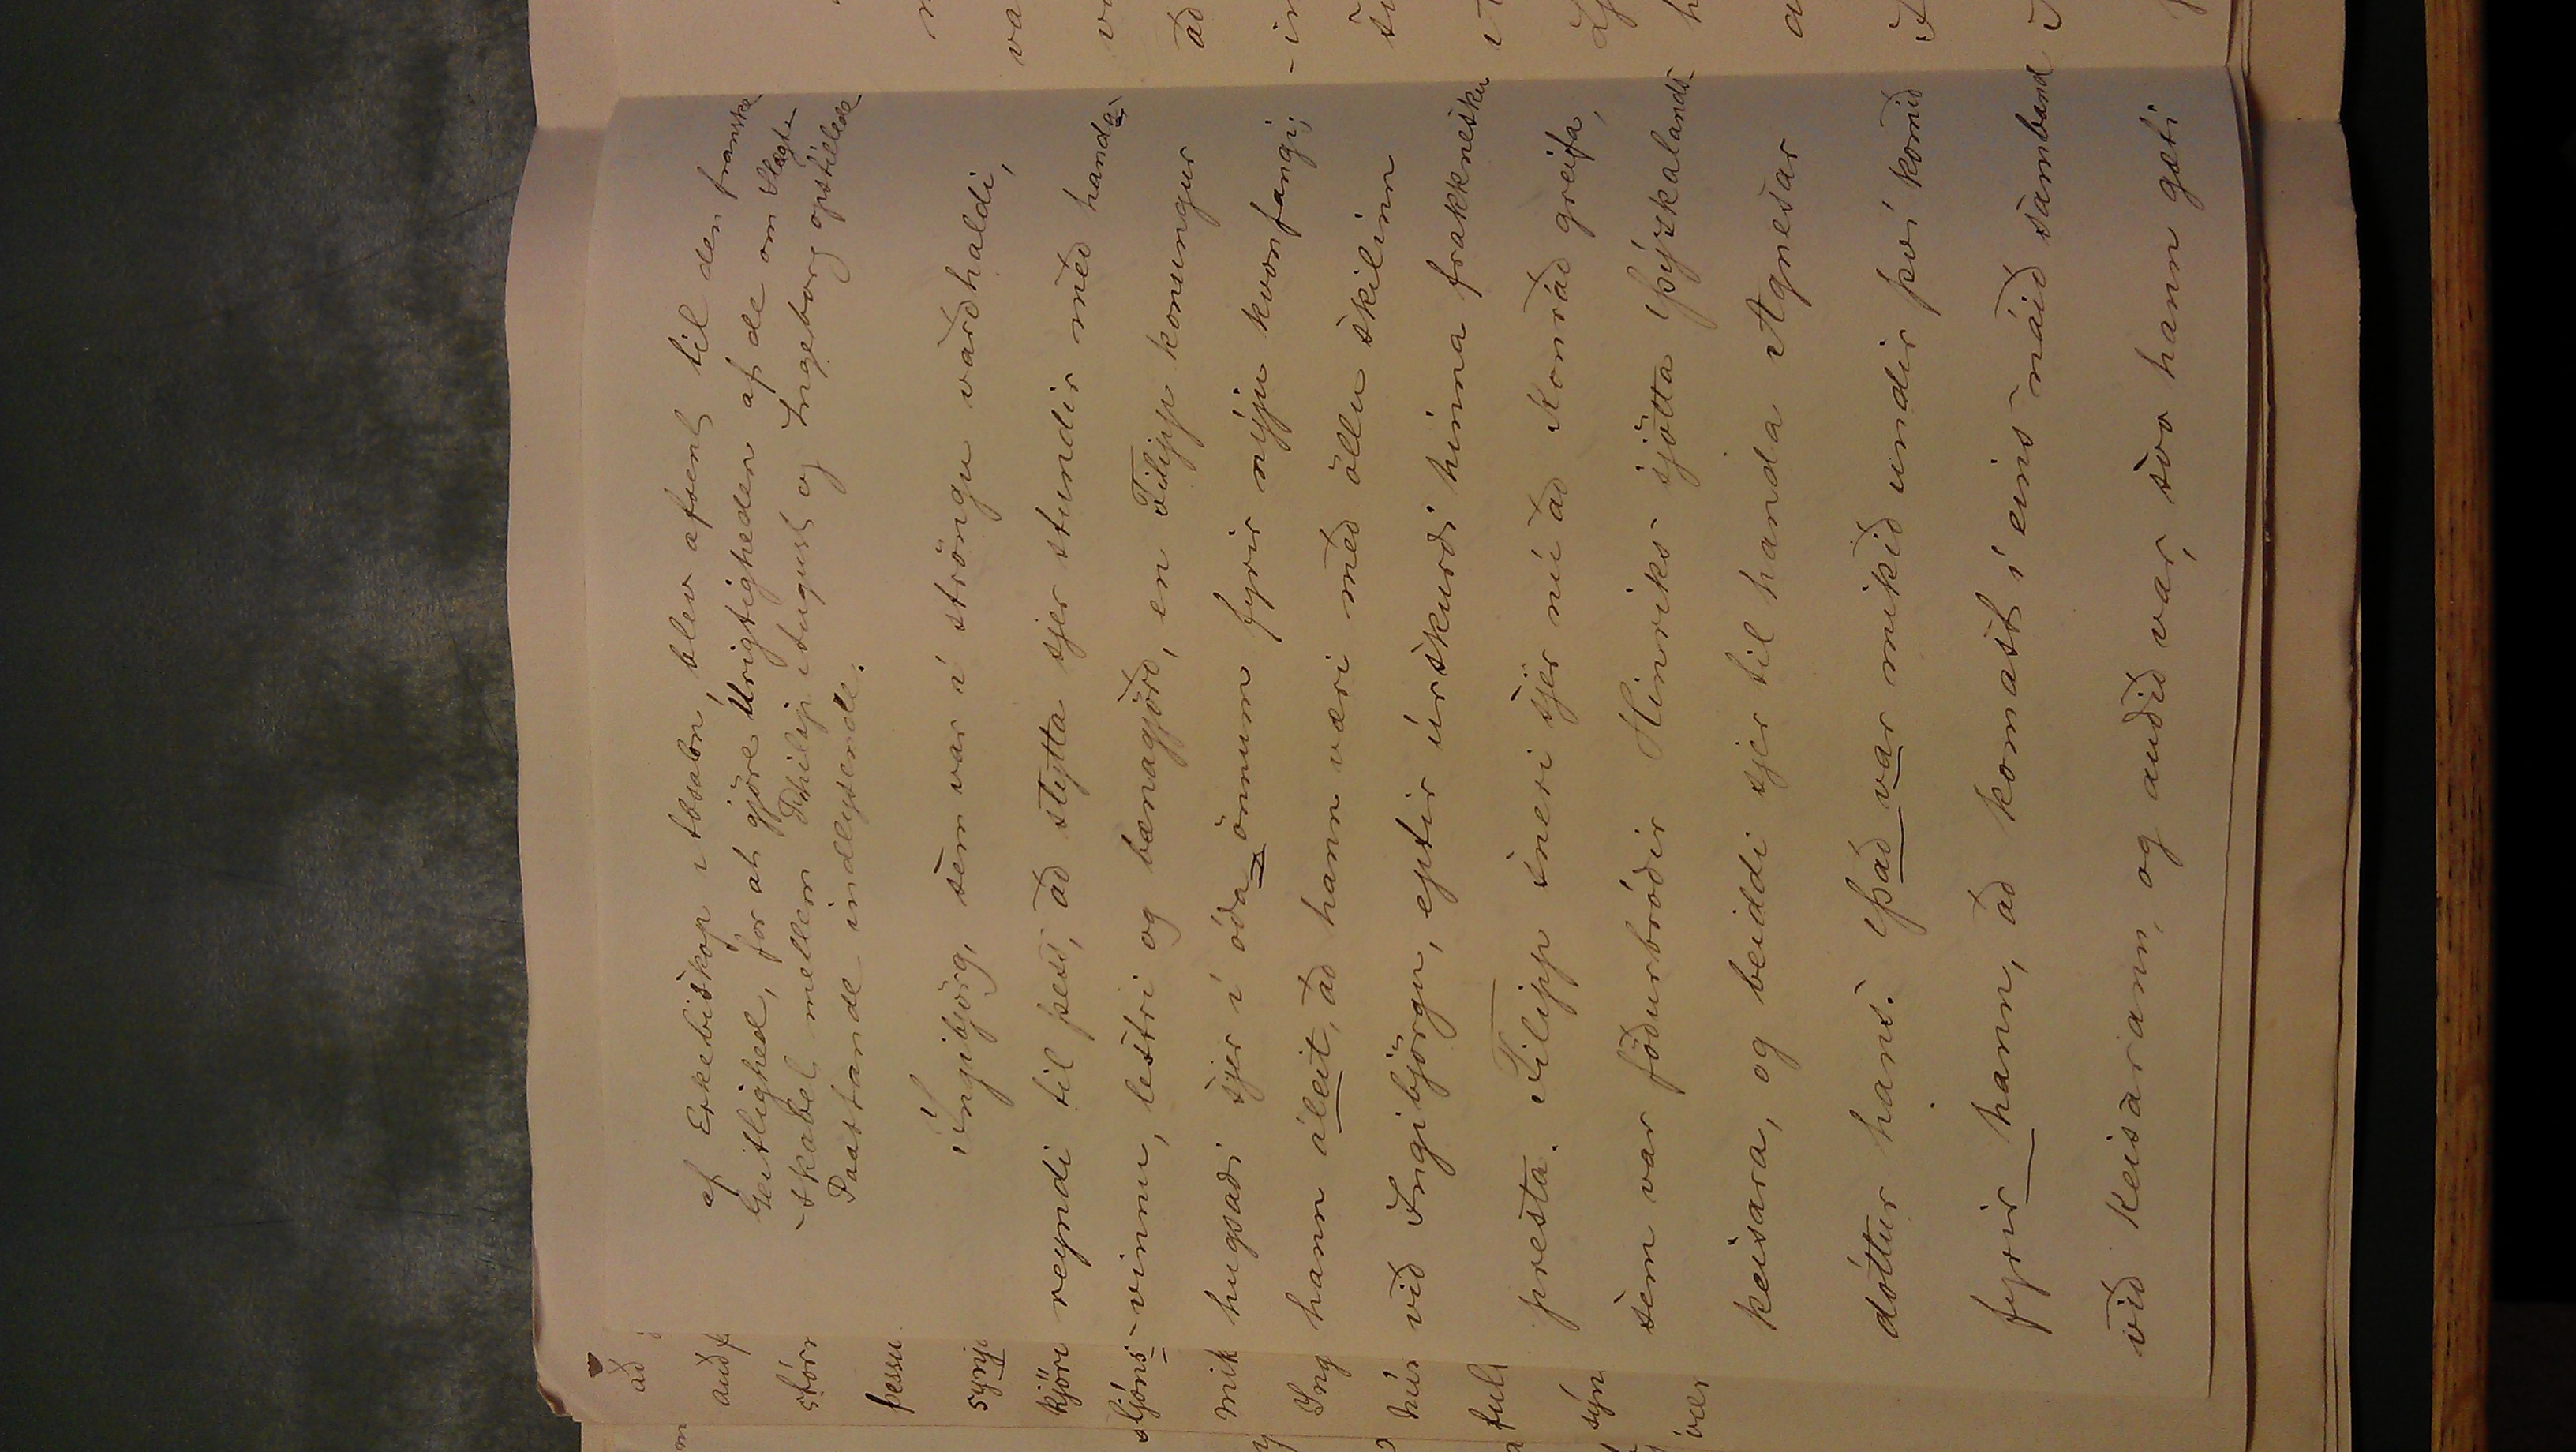 af Erkebiskop Absalon, blev afsent til den franske
Geitlighed, for at gjöre Urigtigheden af de om Slagt-
skabet mellem Philip August og Ingeborg opstillede
Paastande indlysende.
Íngibjörg, sem var í ströngu varðhaldi,
reyndi til þess, að stytta sjer stundir með handa-
vinnu, lestri og bænagjörð, en Filipp konungur
hugsaði sjer í óða önnum fyrir nýju kvonfangi;
hann áleit, að hann væri með öllu skilinn
við Ingibjörgu, eptir úrskurði hinna frakknesku
presta. Filipp sneri sjer nú að Konráð greifa,
sem var föðurbróðir Hinriks sjötta Þýzkalands
keisara, og beiddi sjer til handa Agnesar
dóttur hans. Það var mikið undir því komið
fyrir hann, að komast í eins náið samband
við keisarann, og auðið var, svo hann gæti
að
auðf
stórr
þessu
synji
kjöri
sljóns
mik
Ing
hún
full
sýn
vær